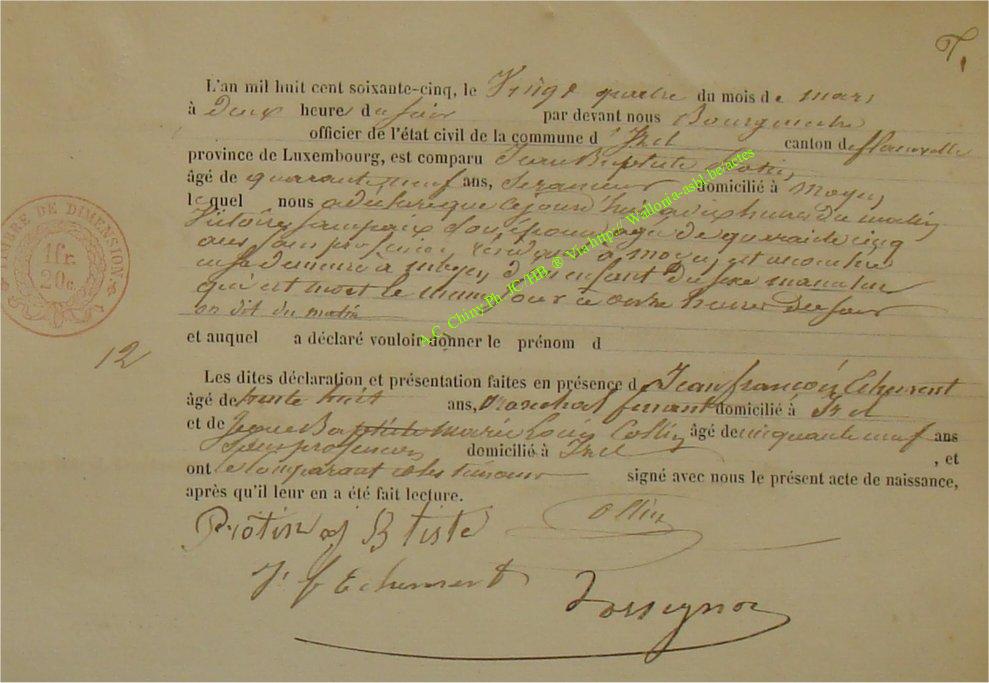 T.
L'an mil huit cent soixante-cinq, le Vingt quatre du mois de mars
à Deux heure du soir par devant nous Bourgmestre
officier de l'état civil de la commune d'Izel canton de florenville
province de Luxembourg, est comparu Jean Baptiste
âgé de quarante neuf ans, domicilié à Moyen
lequel nous a dit que ce jourd'hui à heures du matin
son épouse âgée de quarante cinq
ans sans profession à Moyen est accouchée
en sa demeure à moyen d'un enfant du sexe masculin
qui est mort le même jour à onze heures du soir
on dit du matin
et auquel a déclaré vouloir donner le prénom d
12
Les dites déclaration et présentation faites en présence de Jean françois Echement
âgé de trente huit ans, Marechal ferrant domicilié à Izel
et de Jean Baptiste Marie Louis Collin âgé de cinquante neuf ans
Sans profession domicilié à Izel , et
ont le comparant et les témoins signé avec nous le présent acte de naissance,
après qu'il leur en a été fait lecture.
Collin
Protin j Btiste
J f Echement
TIMBRE DE DIMENSION
1fr.
20c.
A.C. Chiny Ph. JC/HB ® Via http://Wallonia-asbl.be/actes